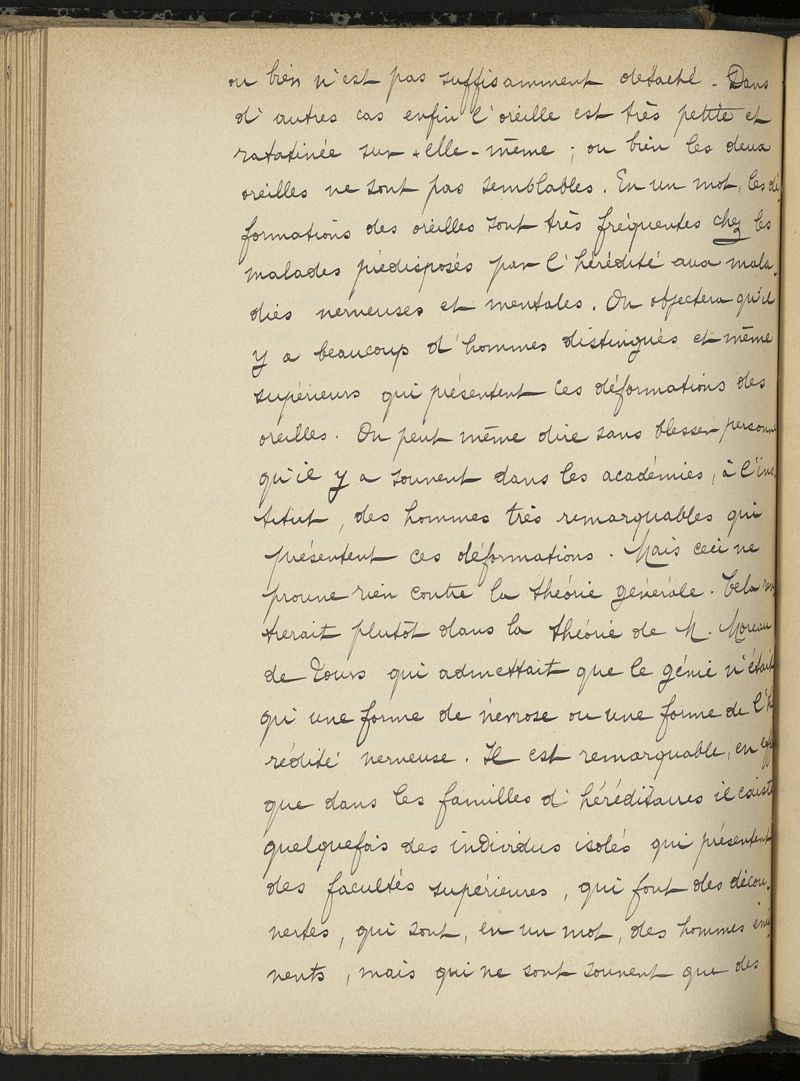 ou bien n'est pas suffisamment détaché. Dans
d'autres cas enfin l'oreille est très petite et
ratatinée sur-elle-même ; ou bien les deux
oreilles ne sont pas semblables. En un mot, les dé-
formations des oreilles sont très fréquentes chez les
malades prédisposés par l'hérédité aux mala-
dies nerveuses et mentales. On objectera qu'il
y a beaucoup d'hommes distingués et même
supérieurs qui présentent ces déformations des
oreilles. On peut même dire sans blesser personne
qu'il y a souvent dans les académies, à l'ins-
titut, des hommes très remarquables qui
présentent ces déformations. Mais ceci ne
prouve rien contre la théorie générale. Cela ren
trerait plutôt dans la théorie de M. Moreau
de Tours qui admettait que le génie n'était
qu'une forme de névrose ou une forme de l'h
rédité nerveuse. Il est remarquable, en eff
que dans les familles d'héréditaires il existe
quelquefois des individus isolés qui présentent
des facultés supérieures, qui font des décou-
vertes, qui sont, en un mot, des hommes émi
nents, mais qui ne sont souvent que des